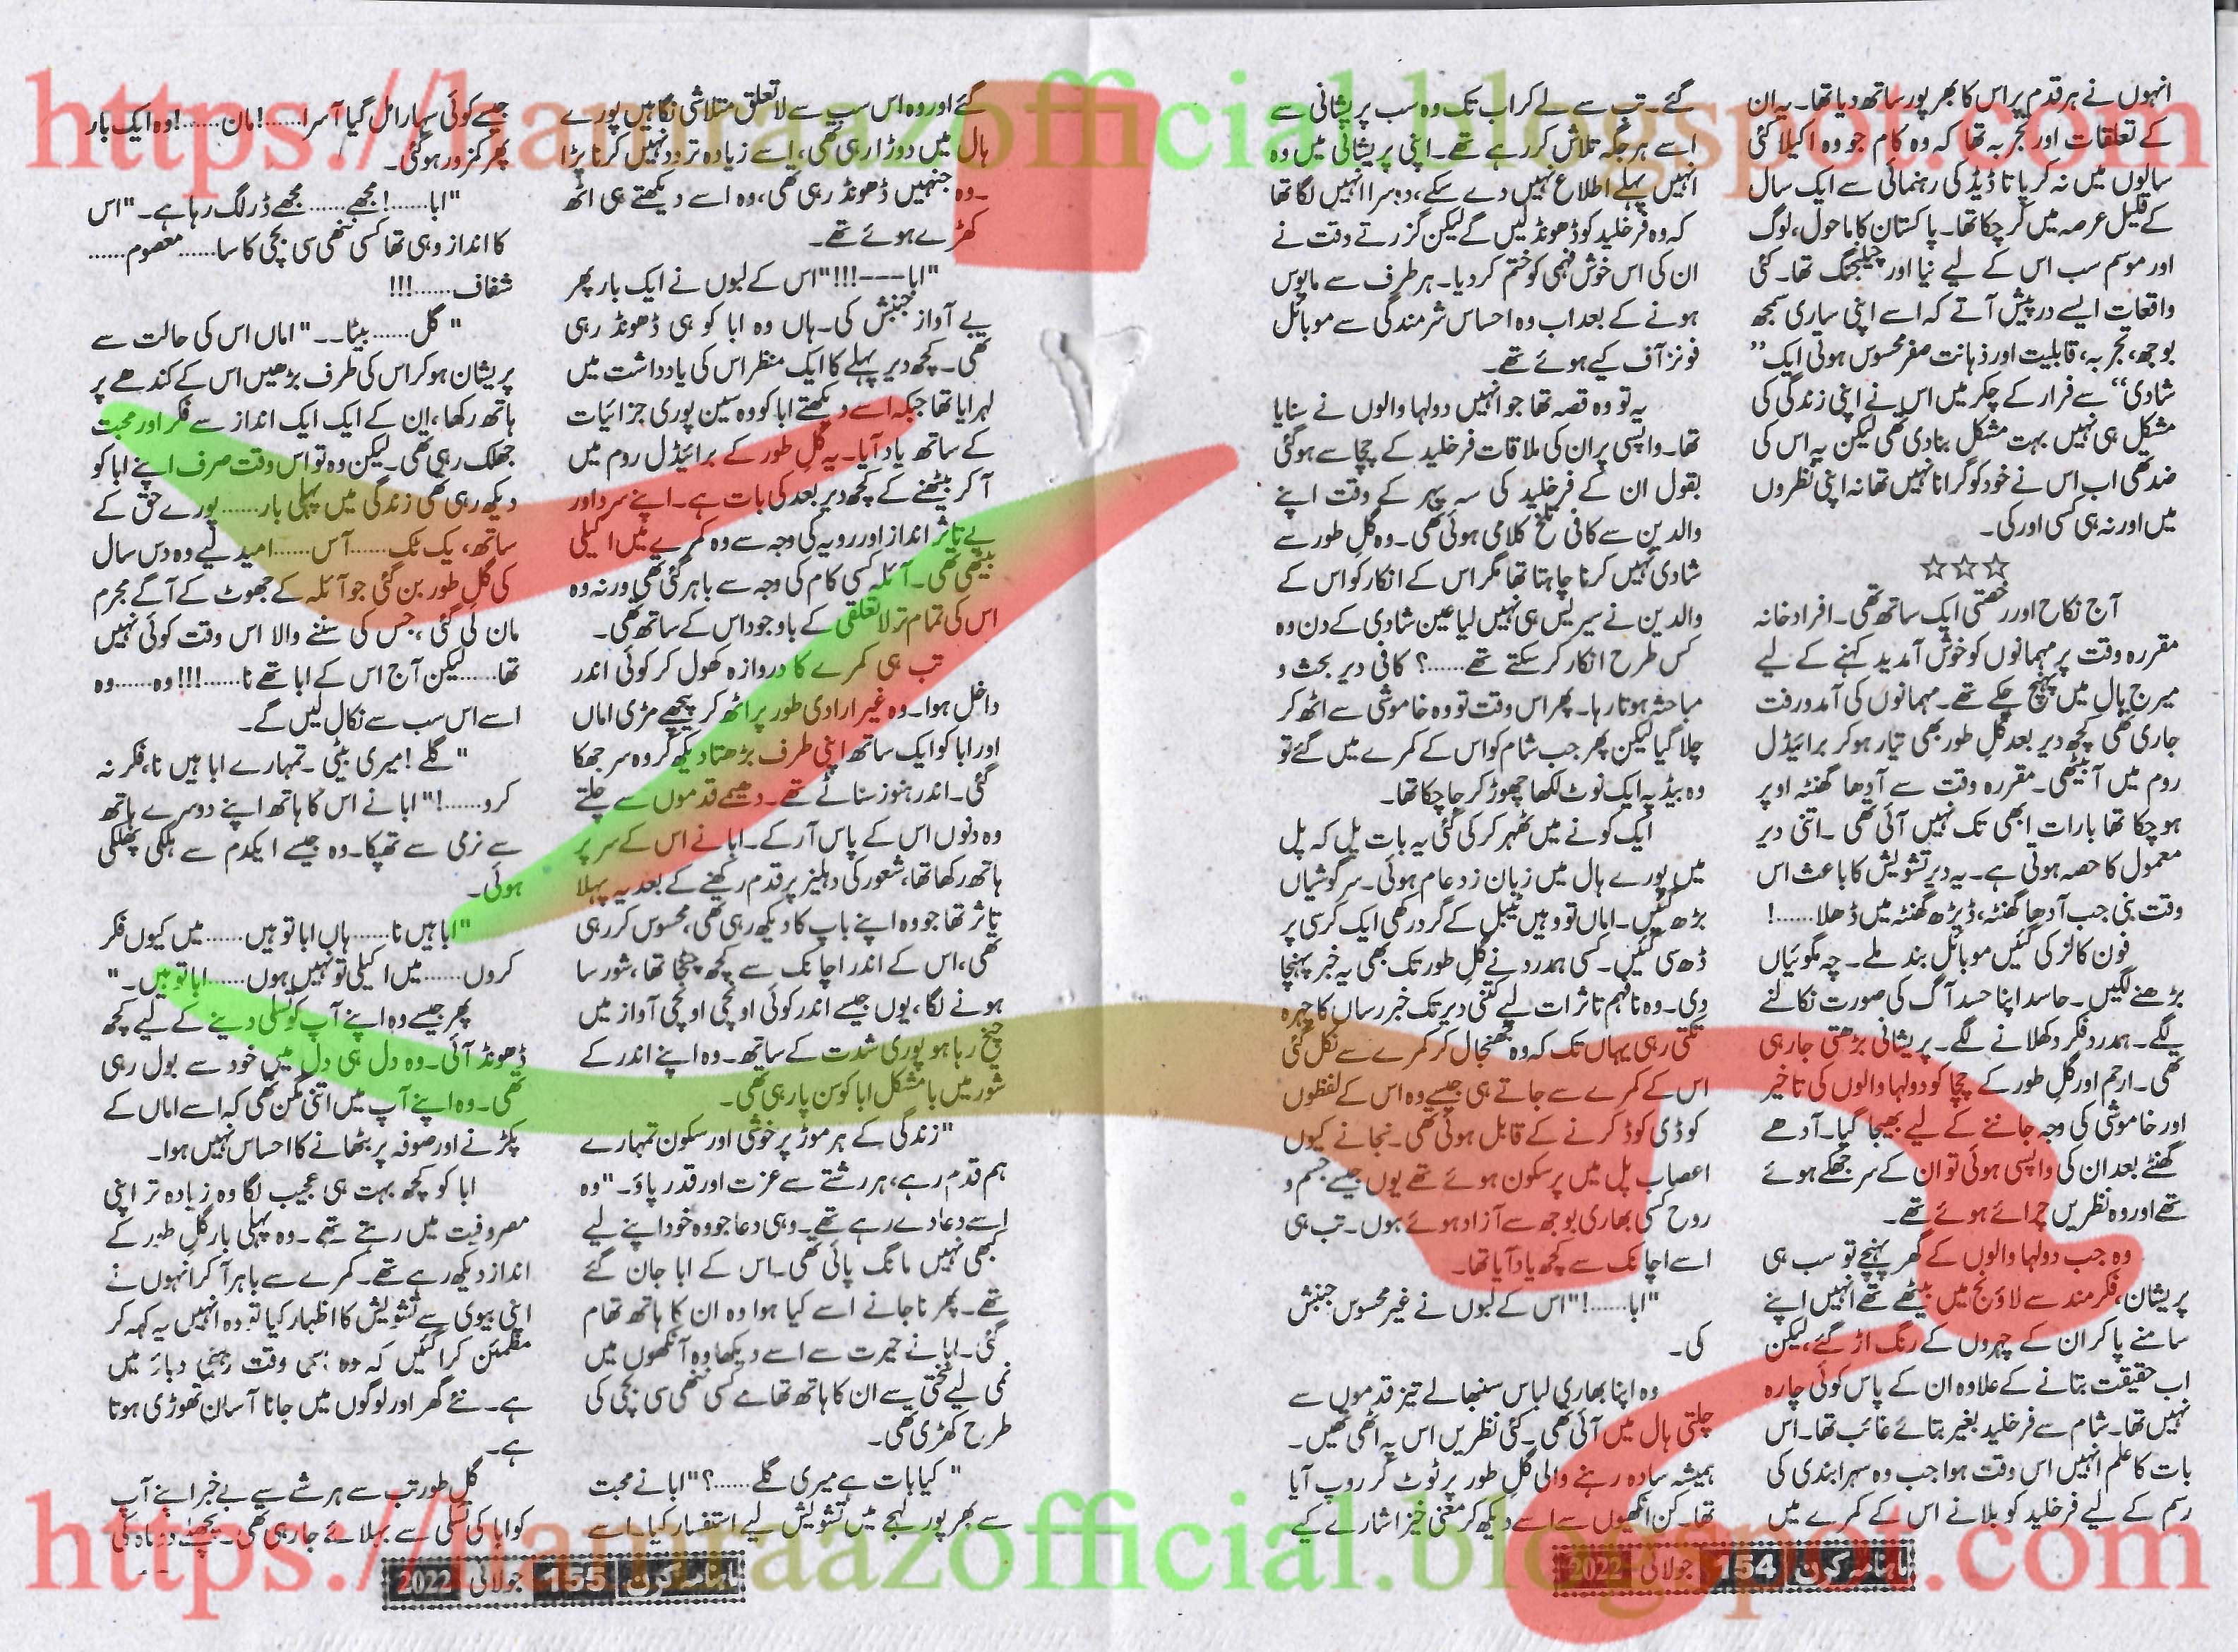 https://hamraazofficial.blogspot.com
انہوں نے ہر قدم پر اس کا بھرپور ساتھ دیا تھا۔ یہ ان
کے تعلقات اور تجربہ تھا کہ وہ کام جو وہ اکیلا کئی
سالوں میں نہ کر پاتا ڈیڈ کی رہنمائی سے ایک سال
کے قلیل عرصہ میں کر چکا تھا۔ پاکستان کا ماحول، لوگ
اور موسم سب اس کے لیے نیا اور چیلنجنگ تھا۔ کئی
واقعات ایسے درپیش آتے کہ اسے اپنی ساری سمجھ
بوجھ، تجربہ، قابلیت اور ذہانت صفر محسوس ہوتی ایک "
شادی" سے فرار کے چکر میں اس نے اپنی زندگی کی
مشکل ہی نہیں بہت مشکل بنا دی تھی لیکن یہ اس کی
ضد تھی اب اس نے خود کو گرانا نہیں تھا نہ اپنی نظروں
میں اور نہ ہی کسی اور کی۔
☆☆☆
آج نکاح اور رخصتی ایک ساتھ تھی۔ افراد خانہ
مقررہ وقت پر مہمانوں کو خوش آمدید کہنے کے لیے
میرج ہال میں پہنچ چکے تھے۔ مہمانوں کی آمدورفت
جاری تھی کچھ دیر بعد گل طور بھی تیار ہو کر برائیڈل
روم میں آ بیٹھی۔ مقررہ وقت سے آدھا گھنٹہ اوپر
ہو چکا تھا بارات ابھی تک نہیں آئی تھی۔ اتنی دیر
معمول کا حصہ ہوتی ہے۔ یہ دیر تشویش کا باعث اس
وقت بنی جب آدھا گھنٹہ، ڈیڑھ گھنٹہ میں ڈھلا......!
فون کالز کی گئیں موبائل بند ملے۔ چہ مگوئیاں
بڑھنے لگیں۔ حاسد اپنا حسد آگ کی صورت نکالنے
لگے۔ ہمدرد فکر دکھلانے لگے۔ پریشانی بڑھتی جا رہی
تھی۔ ارحم اور گل طور کے چچا کو دولہا والوں کی تاخیر
اور خاموشی کی وجہ جاننے کے لیے بھیجا گیا۔ آدھے
گھنٹے بعد ان کی واپسی ہوئی تو ان کے سر جھکے ہوئے
تھے اور وہ نظریں چرائے ہوئے تھے۔
وہ جب دولہا والوں کے گھر پہنچے تو سب ہی
پریشان، فکر مند سے لاؤنج میں بیٹھے تھے انہیں اپنے
سامنے پا کر ان کے چہروں کے رنگ اڑ گئے، لیکن
اب حقیقت بتانے کے علاوہ ان کے پاس کوئی چارہ
نہیں تھا۔ شام سے فرخلید بغیر بتائے غائب تھا۔ اس
بات کا علم انہیں اس وقت ہوا جب وہ سہرا بندی کی
رسم کے لیے فرخلید کو بلانے اس کے کمرے میں
گئے۔ تب سے لے کر اب تک وہ سب پریشانی سے
اسے ہر جگہ تلاش کر رہے تھے۔ اپنی پریشانی میں وہ
انہیں پہلے اطلاع نہیں دے سکے، دوسرا انہیں لگا تھا
کہ وہ فرخلید کو ڈھونڈ لیں گے لیکن گزرتے وقت نے
ان کی اس خوش فہمی کو ختم کر دیا۔ ہر طرف سے مایوس
ہونے کے بعد اب وہ احساس شرمندگی سے موبائل
فونز آف کیے ہوئے تھے۔
یہ تو وہ قصہ تھا جو انہیں دولہا والوں نے سنایا
تھا۔ واپسی پر ان کی ملاقات فرخلید کے چچا سے ہو گئی
بقول ان کے فرخلید کی سہ پہر کے وقت اپنے
والدین سے کافی تلخ کلامی ہوئی تھی۔ وہ گل طور سے
شادی نہیں کرنا چاہتا تھا مگر اس کے انکار کو اس کے
والدین نے سیریس ہی نہیں لیا عین شادی کے دن وہ
کس طرح انکار کر سکتے تھے......؟ کافی دیر بحث و
مباحثہ ہوتا رہا۔ پھر اس وقت تو وہ خاموشی سے اٹھ کر
چلا گیا لیکن پھر جب شام کو اس کے کمرے میں گئے تو
وہ بیڈ پہ ایک نوٹ لکھا چھوڑ کر جا چکا تھا۔
ایک کونے میں ٹھہر کر کی گئی یہ بات پل کہ پل
میں پورے ہال میں زبان زد عام ہوئی۔ سرگوشیاں
بڑھ گئیں۔ اماں تو وہیں ٹیبل کے گرد رکھی ایک کرسی پر
ڈھ سی گئیں۔ کسی ہمدرد نے گل طور تک بھی یہ خبر پہنچا
دی۔ وہ نافہم تاثرات لیے کتنی دیر تک خبر رساں کا چہرہ
تکتی رہی یہاں تک کہ وہ جھنجلا کر کمرے سے نکل گئی
اس کے کمرے سے جاتے ہی جیسے وہ اس کے لفظوں
کو ڈی کوڈ کرنے کے قابل ہوئی تھی۔ نجانے کیوں
اعصاب پل میں پرسکون ہوئے تھے یوں جیسے جسم و
روح کسی بھاری بوجھ سے آزاد ہوئے ہوں۔ تب ہی
اسے اچانک سے کچھ یاد آیا تھا۔
"ابا......!" اس کے لبوں نے غیر محسوس جنبش
کی۔
وہ اپنا بھاری لباس سنبھالے تیز قدموں سے
چلتی ہال میں آئی تھی۔ کئی نظریں اس پہ اٹھی تھیں۔
ہمیشہ سادہ رہنے والی گل طور پر ٹوٹ کر روپ آیا
تھا۔ کن انکھیوں سے اسے دیکھ کر معنی خیز اشارے کیے
ماہنامہ کرن 154 جولائی 2022
گئے اور وہ اس سب سے لاتعلق متلاشی نگاہیں پورے
ہال میں دوڑا رہی تھی، اسے زیادہ تردد نہیں کرنا پڑا
۔وہ جنہیں ڈھونڈ رہی تھی، وہ اسے دیکھتے ہی اٹھ
کھڑے ہوئے تھے۔
"ابا----!!!" اس کے لبوں نے ایک بار پھر
بے آواز جنبش کی۔ ہاں وہ ابا کو ہی ڈھونڈ رہی
تھی۔ کچھ دیر پہلے کا ایک منظر اس کی یادداشت میں
لہرایا تھا جبکہ اسے دیکھتے ابا کو وہ سین پوری جزائیات
کے ساتھ یاد آیا۔ یہ گل طور کے برائیڈل روم میں
آ کر بیٹھنے کے کچھ دیر بعد کی بات ہے۔ اپنے سرد اور
بے تاثر انداز اور رویہ کی وجہ سے وہ کمرے میں اکیلی
بیٹھی تھی۔ آئلہ کسی کام کی وجہ سے باہر گئی تھی ورنہ وہ
اس کی تمام تر لاتعلقی کے باوجود اس کے ساتھ تھی۔
تب ہی کمرے کا دروازہ کھول کر کوئی اندر
داخل ہوا۔ وہ غیر ارادی طور پر اٹھ کر پیچھے مڑی اماں
اور ابا کو ایک ساتھ اپنی طرف بڑھتا دیکھ کر وہ سر جھکا
گئی۔ اندر ہنوز سناٹے تھے۔ دھیمے قدموں سے چلتے
وہ دونوں اس کے پاس آ رکے۔ ابا نے اس کے سر پر
ہاتھ رکھا تھا، شعور کی دہلیز پر قدم رکھنے کے بعد یہ پہلا
تاثر تھا جو وہ اپنے باپ کا دیکھ رہی تھی، محسوس کر رہی
تھی، اس کے اندر اچانک سے کچھ چٹخا تھا، شور سا
ہونے لگا، یوں جیسے اندر کوئی اونچی اونچی آواز میں
چیخ رہا ہو پوری شدت کے ساتھ۔ وہ اپنے اندر کے
شور میں با مشکل ابا کو سن پا رہی تھی۔
"زندگی کے ہر موڑ پر خوشی اور سکون تمہارے
ہم قدم رہے، ہر رشتے سے عزت اور قدر پاؤ۔" وہ
اسے دعا دے رہے تھے۔ وہی دعا جو وہ خود اپنے لیے
کبھی نہیں مانگ پائی تھی۔ اس کے ابا جان گئے
تھے۔ پھر نا جانے اسے کیا ہوا وہ ان کا ہاتھ تھام
گئی۔ ابا نے حیرت سے اسے دیکھا وہ آنکھوں میں
نمی لیے سختی سے ان کا ہاتھ تھامے کسی ننھی سی بچی کی
طرح کھڑی تھی۔
"کیا بات ہے میری گلے......؟" ابا نے محبت
سے بھرپور لہجے میں تشویش لیے استفسار کیا۔ اسے
جیسے کوئی سہارا مل گیا آسرا......! مان......! وہ ایک بار
پھر کمزور ہو گئی۔
"ابا......! مجھے...... مجھے ڈر لگ رہا ہے۔" اس
کا انداز وہی تھا کسی ننھی سی بچی کا سا...... معصوم......
شفاف......!!!
"گل...... بیٹا۔۔" اماں اس کی حالت سے
پریشان ہو کر اس کی طرف بڑھیں اس کے کندھے پر
ہاتھ رکھا، ان کے ایک ایک انداز سے فکر اور محبت
جھلک رہی تھی۔ لیکن وہ تو اس وقت صرف اپنے ابا کو
دیکھ رہی تھی زندگی میں پہلی بار...... پورے حق کے
ساتھ، یک ٹک...... آس...... امید لیے وہ دس سال
کی گل طور بن گئی جو آئلہ کے جھوٹ کے آگے مجرم
مان لی گئی، جس کی سننے والا اس وقت کوئی نہیں
تھا...... لیکن آج اس کے ابا تھے نا......!!! وہ...... وہ
اسے اس سب سے نکال لیں گے۔
"گلے! میری بیٹی۔ تمہارے ابا ہیں نا، فکر نہ
کرو......!" ابا نے اس کا ہاتھ اپنے دوسرے ہاتھ
سے نرمی سے تھپکا۔ وہ جیسے ایکدم سے ہلکی پھلکی
ہوئی۔
"ابا ہیں نا...... ہاں ابا تو ہیں...... میں کیوں فکر
کروں...... میں اکیلی تو نہیں ہوں...... ابا تو ہیں۔"
پھر جیسے وہ اپنے آپ کو تسلی دینے کے لیے کچھ
ڈھونڈ آئی۔ وہ دل ہی دل میں خود سے بول رہی
تھی۔ وہ اپنے آپ میں اتنی مگن تھی کہ اسے اماں کے
پکڑنے اور صوفہ پر بٹھانے کا احساس نہیں ہوا۔
ابا کو کچھ بہت ہی عجیب لگا وہ زیادہ تر اپنی
مصروفیت میں رہتے تھے۔ وہ پہلی بار گل طور کے
انداز دیکھ رہے تھے۔ کمرے سے باہر آ کر انہوں نے
اپنی بیوی سے تشویش کا اظہار کیا تو وہ انہیں یہ کہہ کر
مطمئن کرا گئیں کہ وہ اس وقت ذہنی دباؤ میں
ہے۔ نئے گھر اور لوگوں میں جانا آسان تھوڑی ہوتا
ہے۔
گل طور تب سے ہر شے سے بے خبر اپنے آپ
کو ابا کی تسلی سے بہلائے جا رہی تھی۔ پچھلے دو ماہ کی
ماہنامہ کرن 155 جولائی 2022
https://hamraazofficial.blogspot.com